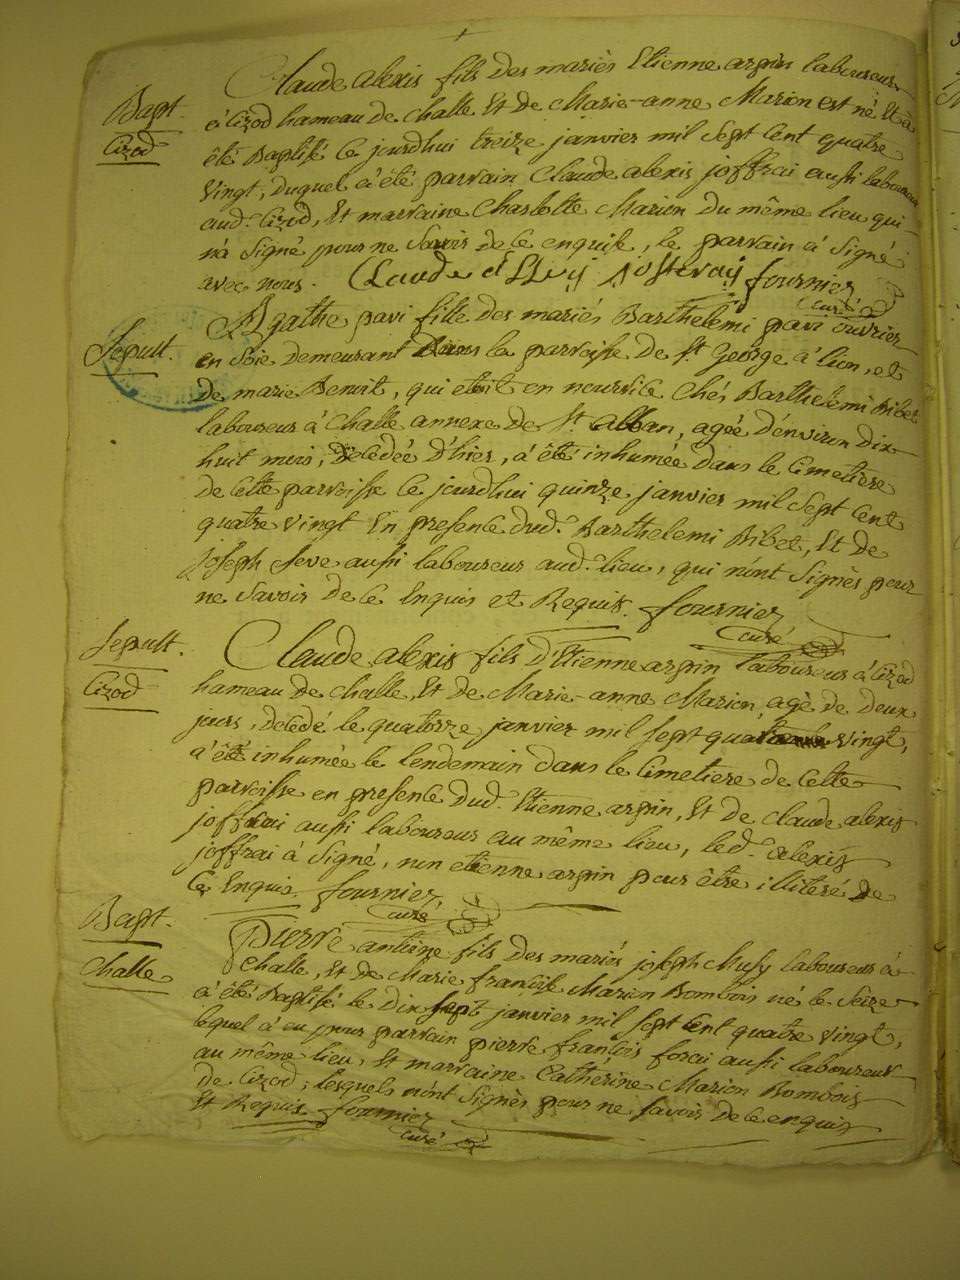 Bapt.
Cizod
Claude alexis fils des mariés Etienne arpin laboureur
à Cizod hameau de Challe Et de Marie-anne Marion est né Et à
été Baptisé Ce jourdhui treize janvier mil Sept Cent quatre
Vingt, duquel à été parrain Claude alexis joffrai aussi laboureur
aud. Cizod, Et marraine Charlotte Marion du même lieu qui
n'à Signé pour ne Savoir de Ce enquise, le parrain à Signé
avec nous. Claude joffray fournier
curé
Sepult.
Agathe pavi fille des mariés Barthelemi pavi ouvrier
en Soie demeurant dans la parroisse de St. George à lion, et
de marie Benoit, qui etoit en nourrice Chés Barthelemi Bibet
laboureur à Challe annexe de St. alban, agée d'environ dix
huit mois, decedée d'hier, à été inhumée dans le Cimetiere
de Cette parroisse Ce jourdhui quinze janvier mil Sept Cent
quatre Vingt En presence dud. Barthelemi Bibet, Et de
joseph Seve aussi laboureur aud. lieu, qui n'ont Signés pour
ne Savoir de Ce Enquis et Requis. fournier
curé
Sepult.
Cizod
Claude alexis fils d'Etienne arpin laboureur à Cizod
hameau de Challe, Et de Marie-anne Marion, agé de deux
jours, decedé le quatorze janvier mil Sept quatre Vingt,
à été inhumée le lendemain dans le Cimetiere de Cette
parroisse en presence dud. Etienne arpin, Et de Claude alexis
joffrai aussi laboureur au même lieu, led. alexis
joffrai à Signé, non etienne arpin pour être illiteré de
Ce Enquis. fournier,
curé
Bapt.
Challe
Pierre antoine fils des mariés joseph Musy laboureur à
Challe, Et de Marie françoise Marion Bombois né le Seize
à été Baptisé le dix Sept janvier mil Sept Cent quatre Vingt,
lequel à eu pour parrain pierre françois forai aussi laboureur
au même lieu, Et marraine Catherine Marion Bombois
de Cizod, lesquels n'ont Signés pour ne Savoir de Ce enquis
Et Requis fournier
curé